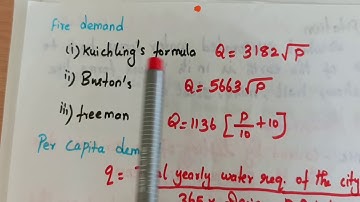 Fire demand
(i) Kuichling's formula Q = 3182√P
ii) Buston's Q = 5663√P
iii) freeman Q = 1136 [P/10 + 10]
Per Capita dem
q = l yearly water req. of the city
365 x